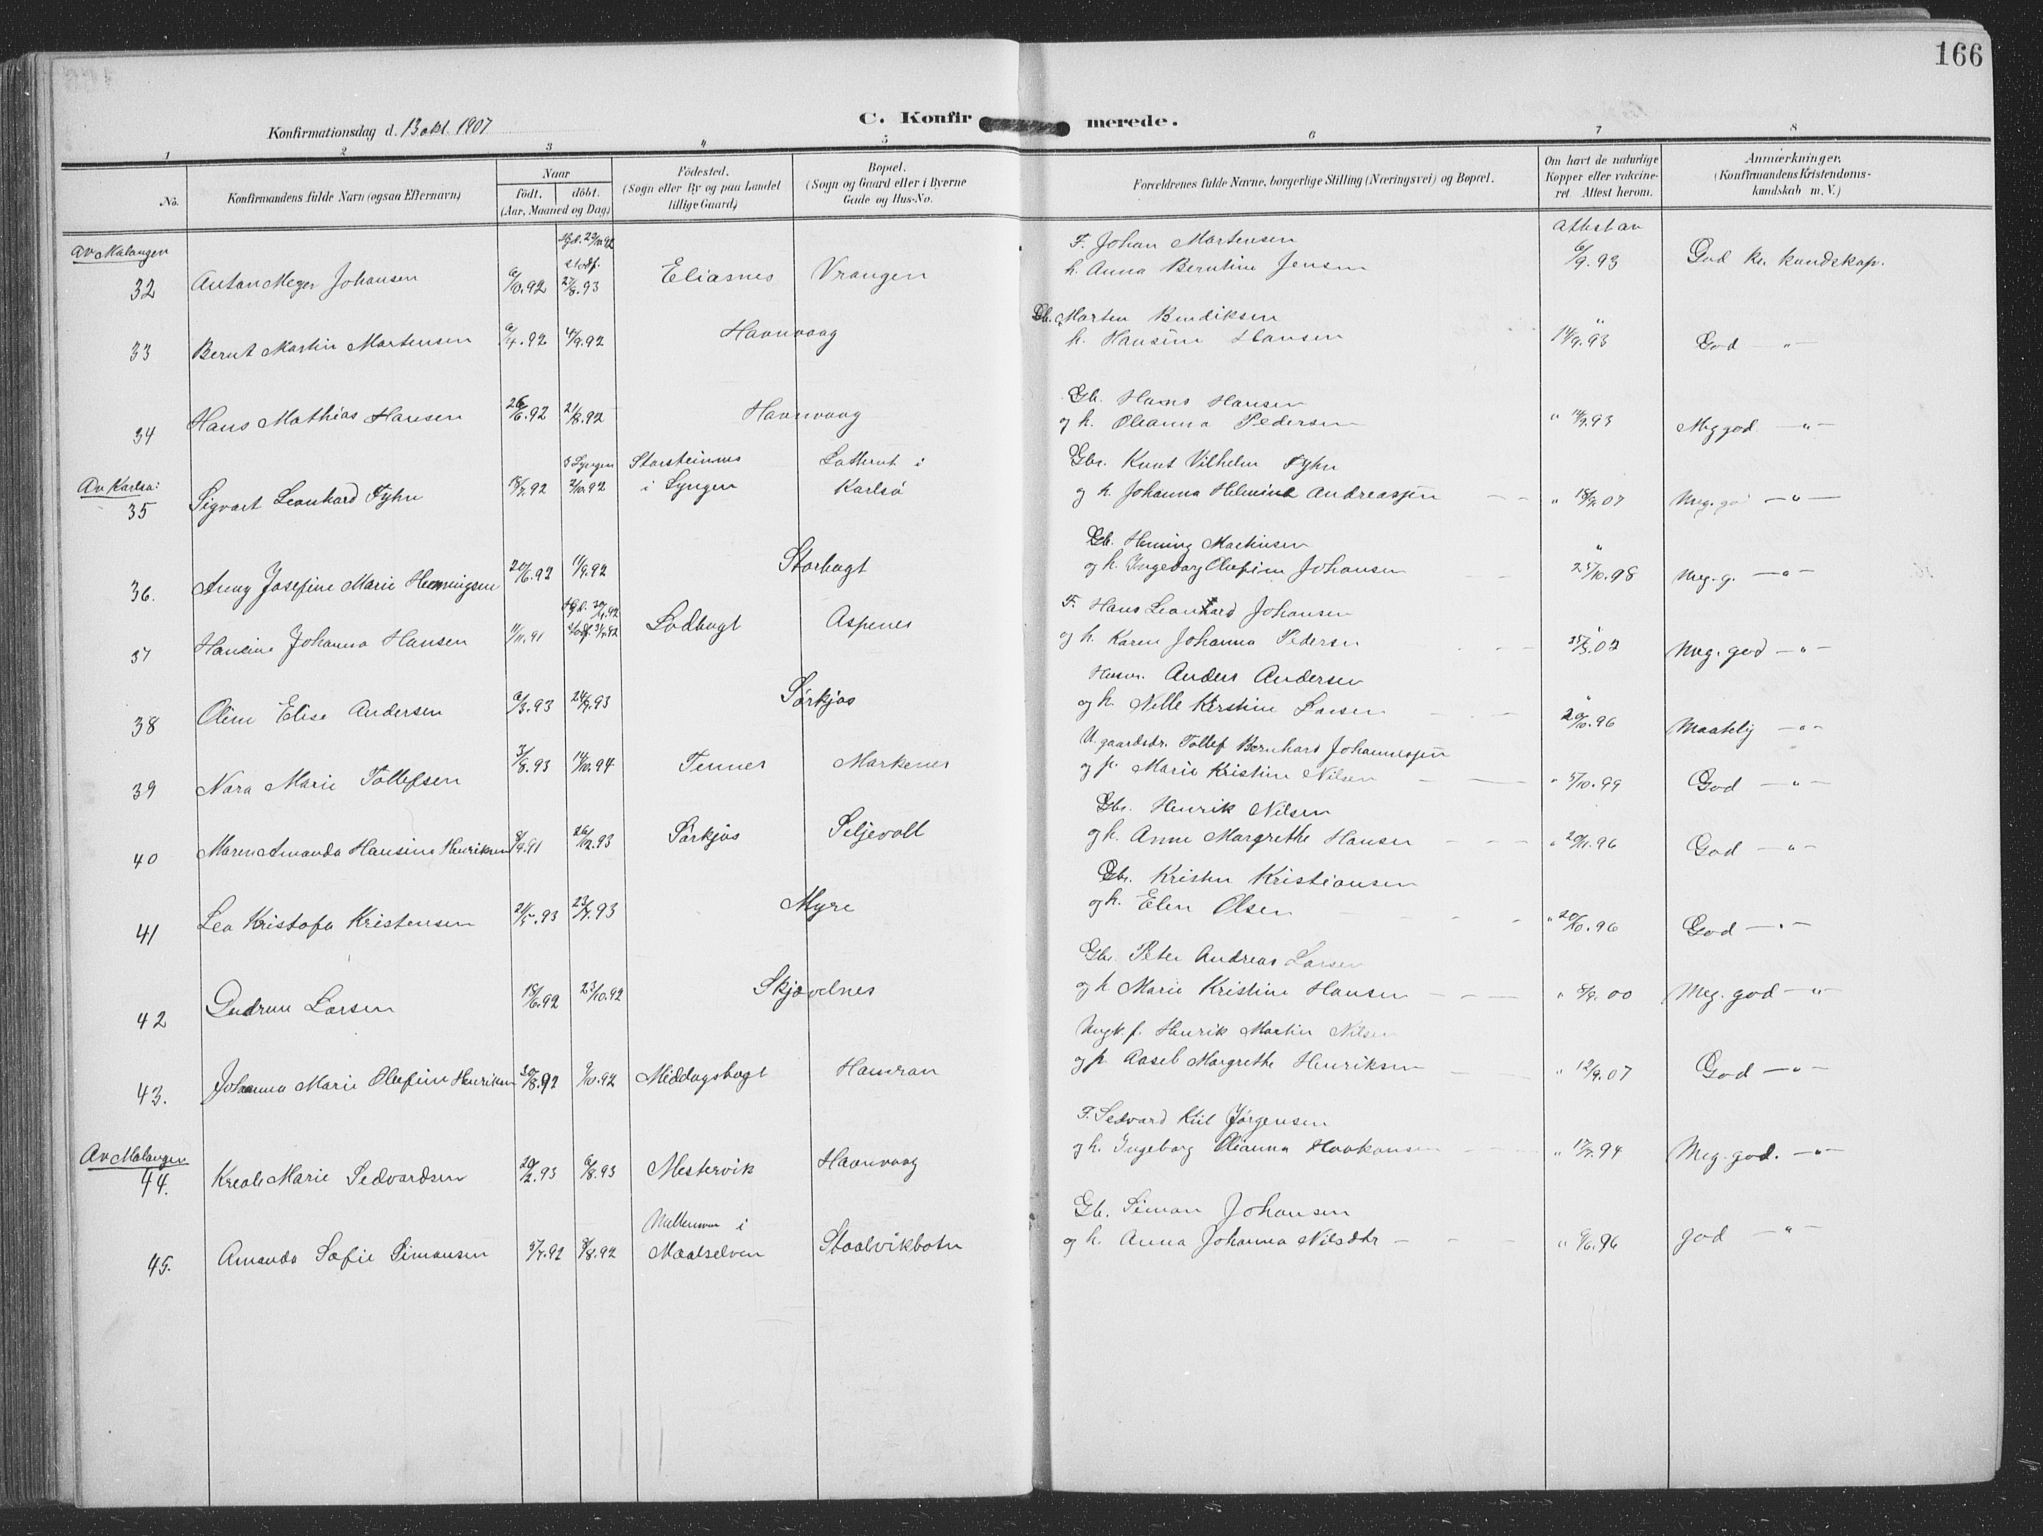 166
Konfirmationsdag d. 13 okt. 1907
C. Konfirmerede.
1 2 3 4 5 6 7 8
No. Konfirmandens fulde Navn (ogsaa Efternavn) Naar født. døbt. (Aar, Maaned og Dag) Födested. (Sogn eller By og paa Landet tillige Gaard) Bopæl. (Sogn og Gaard eller i Byerne Gade og Hus-No. Forældrenes fulde Navne, borgerlige Stilling (Næringsvei) og Bopæl. Om havt de naturlige Kopper eller vakcineret Attest herom. Anmærkninger. (Konfirmandens Kristendomskundskab m. V.)
Av Malangen
32 Anton Meyer Johansen 6/10.92 Hjd. 29/10.92 Stadf. 27/8.93 Eliasnes Vrangen F. Johan Martensen h. Anna Berntine Jensen Attest av 6/9.93 God kr. kundskap.
33 Bernt Martin Martensen 6/4.92 4/9.92 Havnvaag Gb. Morten Bendiksen h. Hansine Hansen " 14/9.93 God — " —
34 Hans Mathias Hansen 26/6.92 21/8.92 Havnvaag Gb. Hans Hansen og h. Oleanna Pedersen " 14/9.93 Meg god — " —
Av Karlsø:
35 Sigvart Leonhard Fyhn 18/7.92 i Lyngen 2/10.92 Storsteinnes i Lyngen Karlsö Gbr. Knut Vilhelm Fyhn og h. Johanna Helmine Andreassen " 18/9.07 Meg. go — " —
36. Anny Josefine Marie Henningsen 20/6.92 11/9.92 Storbugt Gb. Hening Martinsen og h. Ingeborg Olufine Johansen " 25/10.98 Meg. g. — " —
37 Hansine Johanna Hansen 11/11.91 Lodbugt Aspenes F. Hans Leonhard Johansen og h. Karen Johanna Pedersen " 25/8.02 Meg. god — " —
38 Oline Elise Andersen 6/3.93 24/9.93 Sørkjos Husm. Anders Andersen og h. Nelle Kerstine Larsen " 20/10.96 Maatelig — " —
39 Nora Marie Tollefsen 3/8.93 14/10.94 Tennes Markenes U. gaardsbr. Tollef Bernhard Johannessen og p. Marie Kristine Nilsen " 5/10.99 God — " —
40 Maren Amanda Hansine Henriksen 8/9.91 26/12.93 Sørkjos Seljevoll Gbr. Henrik Nilsen og h. Anne Margrethe Hansen " 20/11.96 God — " —
41 Lea Kristofa Kristensen 21/5.93 23/7.93 Myre Gbr. Kristen Kristiansen og h. Elen Olsen " 20/10.96 God — " —
42 Gudrun Larsen 18/6.92 23/10.92 Skjævelnes Gbr. Peter Andreas Larsen og h. Marie Kristine Hansen " 8/9.00 Meg. god — " —
43. Johanna Marie Olufine Henriksen 30/8.92 9/10.92 Middagsbugt Hamran Ungk. f. Henrik Martin Nilsen og p. Aasel Margrethe Henriksen " 12/9.07 God — " —
Av Malangen
44. Kreale Marie Sedvardsen 20/2.93 6/8.93 Mestervik Havnvaag F. Sedvard Kiil Jørgensen og h. Ingeborg Oleanna Haakonsen " 17/7.94 Meg. god. — " —
45. Amanda Sofie Simonsen 5/7.92 8/8.92 i Maalselven Staalvikbotn Gb. Simon Johansen og h. Anna Johanna Nilsdtr " 6/6.96 god — " —